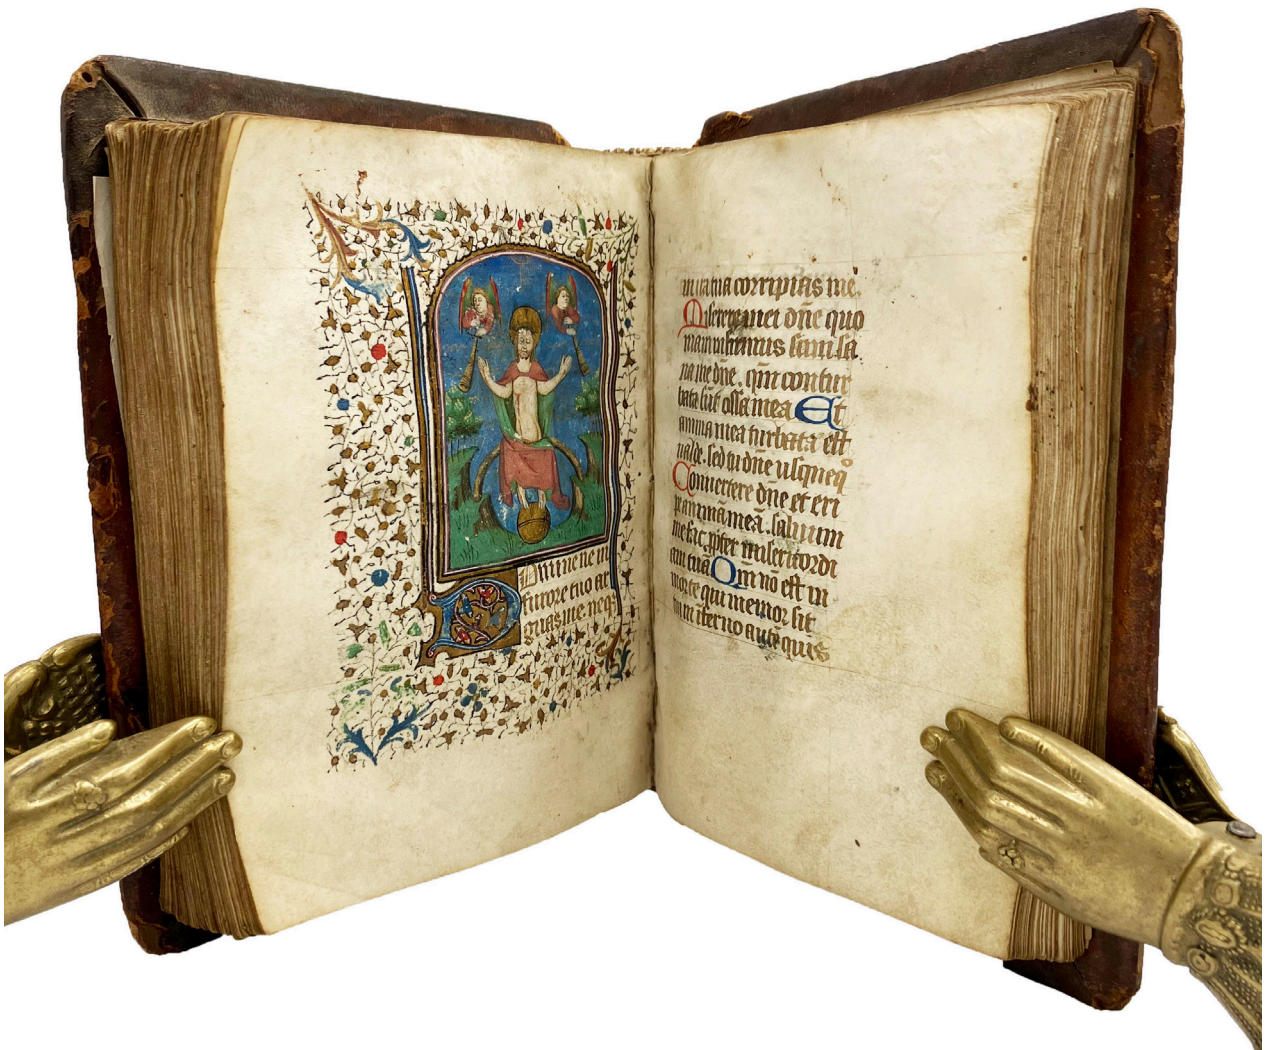 Domine ne in
furore tuo ar
guas me neq3
in ira tua corripias me.
Miserere mei dñe quo
niam infirmus sum. sa
na me dñe. qm̄ contur
bata sūt ossa mea Et
anima mea turbata est
ualde. sed tu dñe usqueq̊
Conuertere dñe et eri
pe animā meā. saluum
me fac ꝓpter misericordi
am tuā Qm̄ nō est in
morte qui memor sit
tui in inferno autē quis